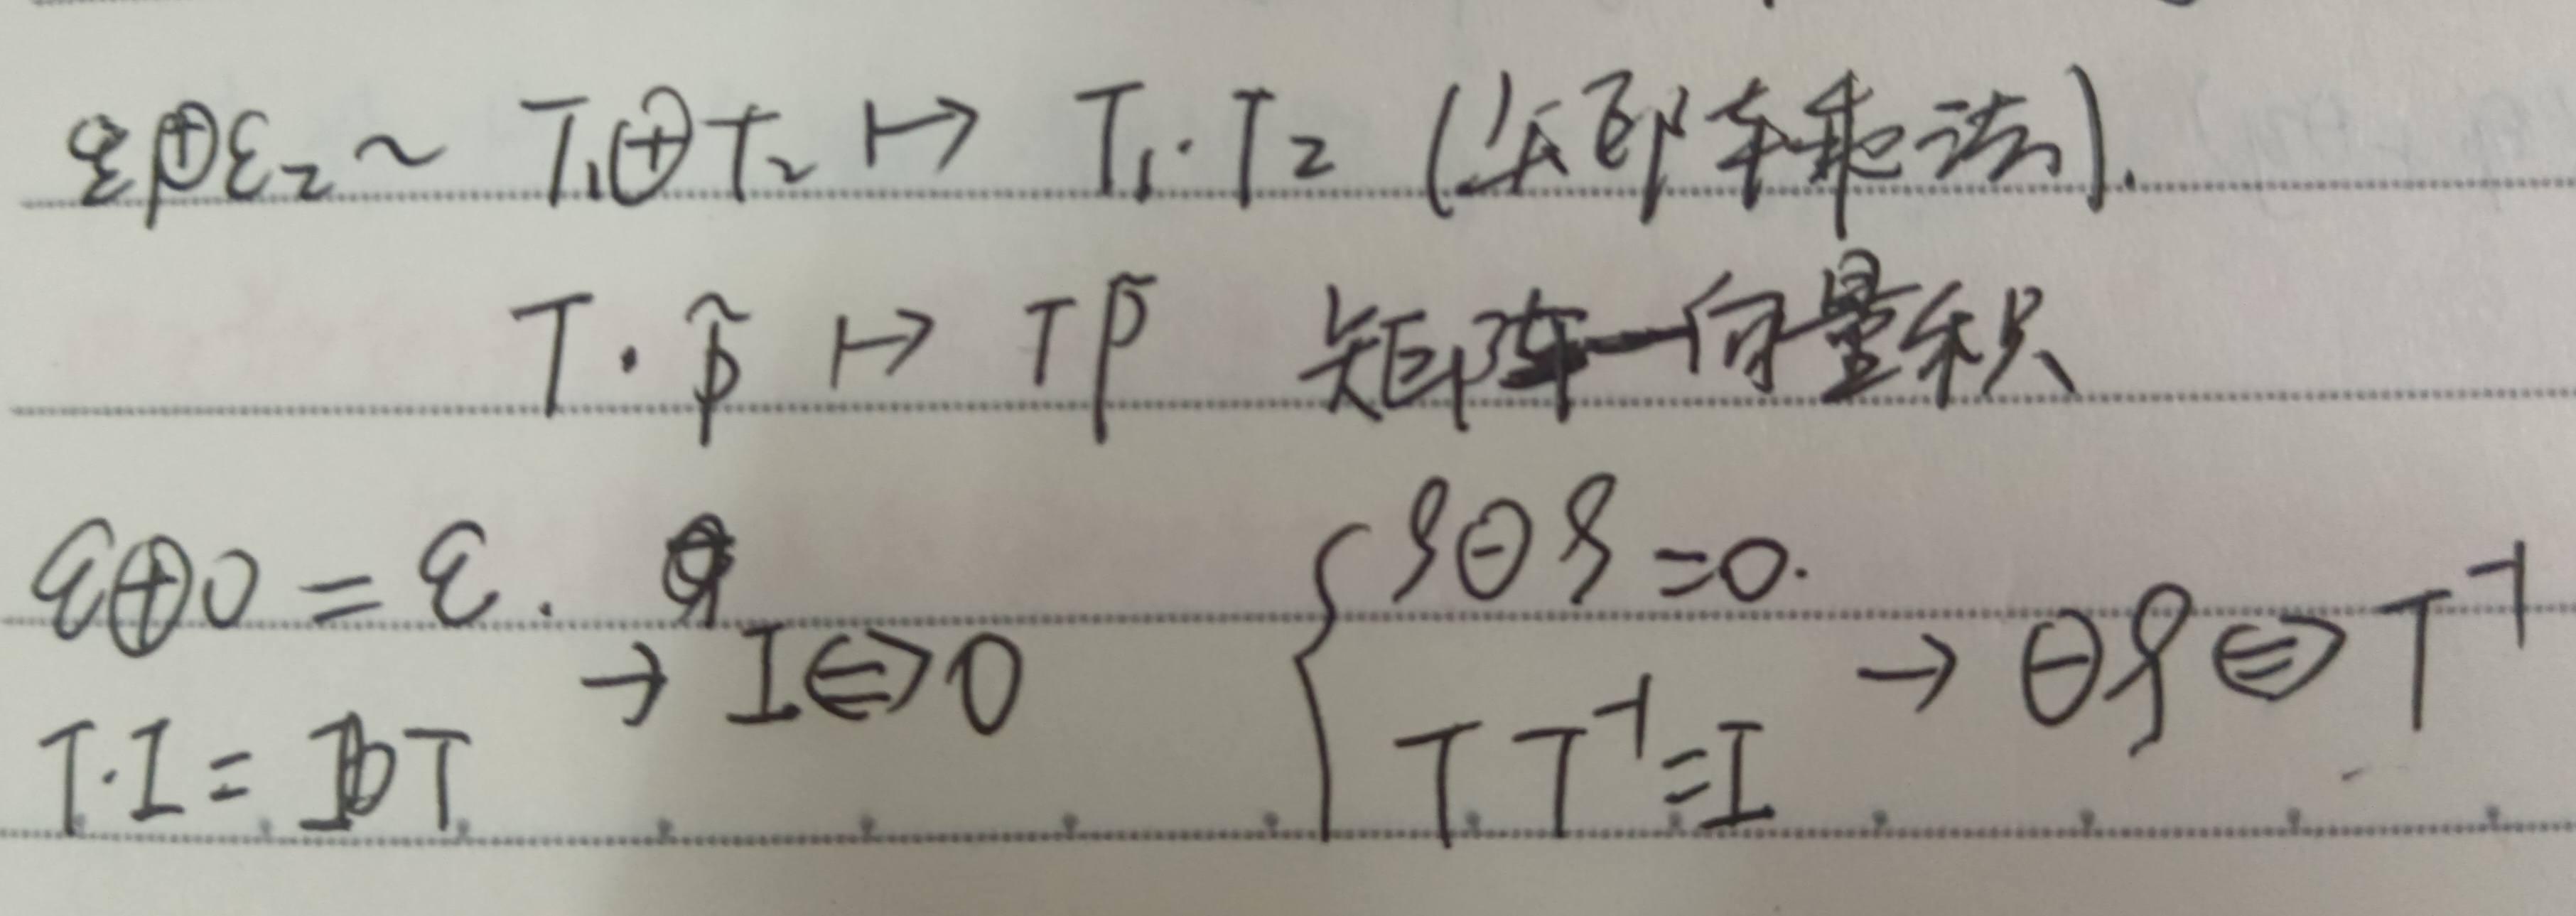 ε₁⊕ε₂ ~ T₁⊕T₂ ↦ T₁·T₂ (矩阵乘法).
T · p̃ ↦ Tp̃ 矩阵一向量积
ε⊕0 = ε.
→ I⇔0
T·I = T
{ ξ⊖ξ =0.
T T⁻¹=I
→ ⊖ξ ⇔ T⁻¹